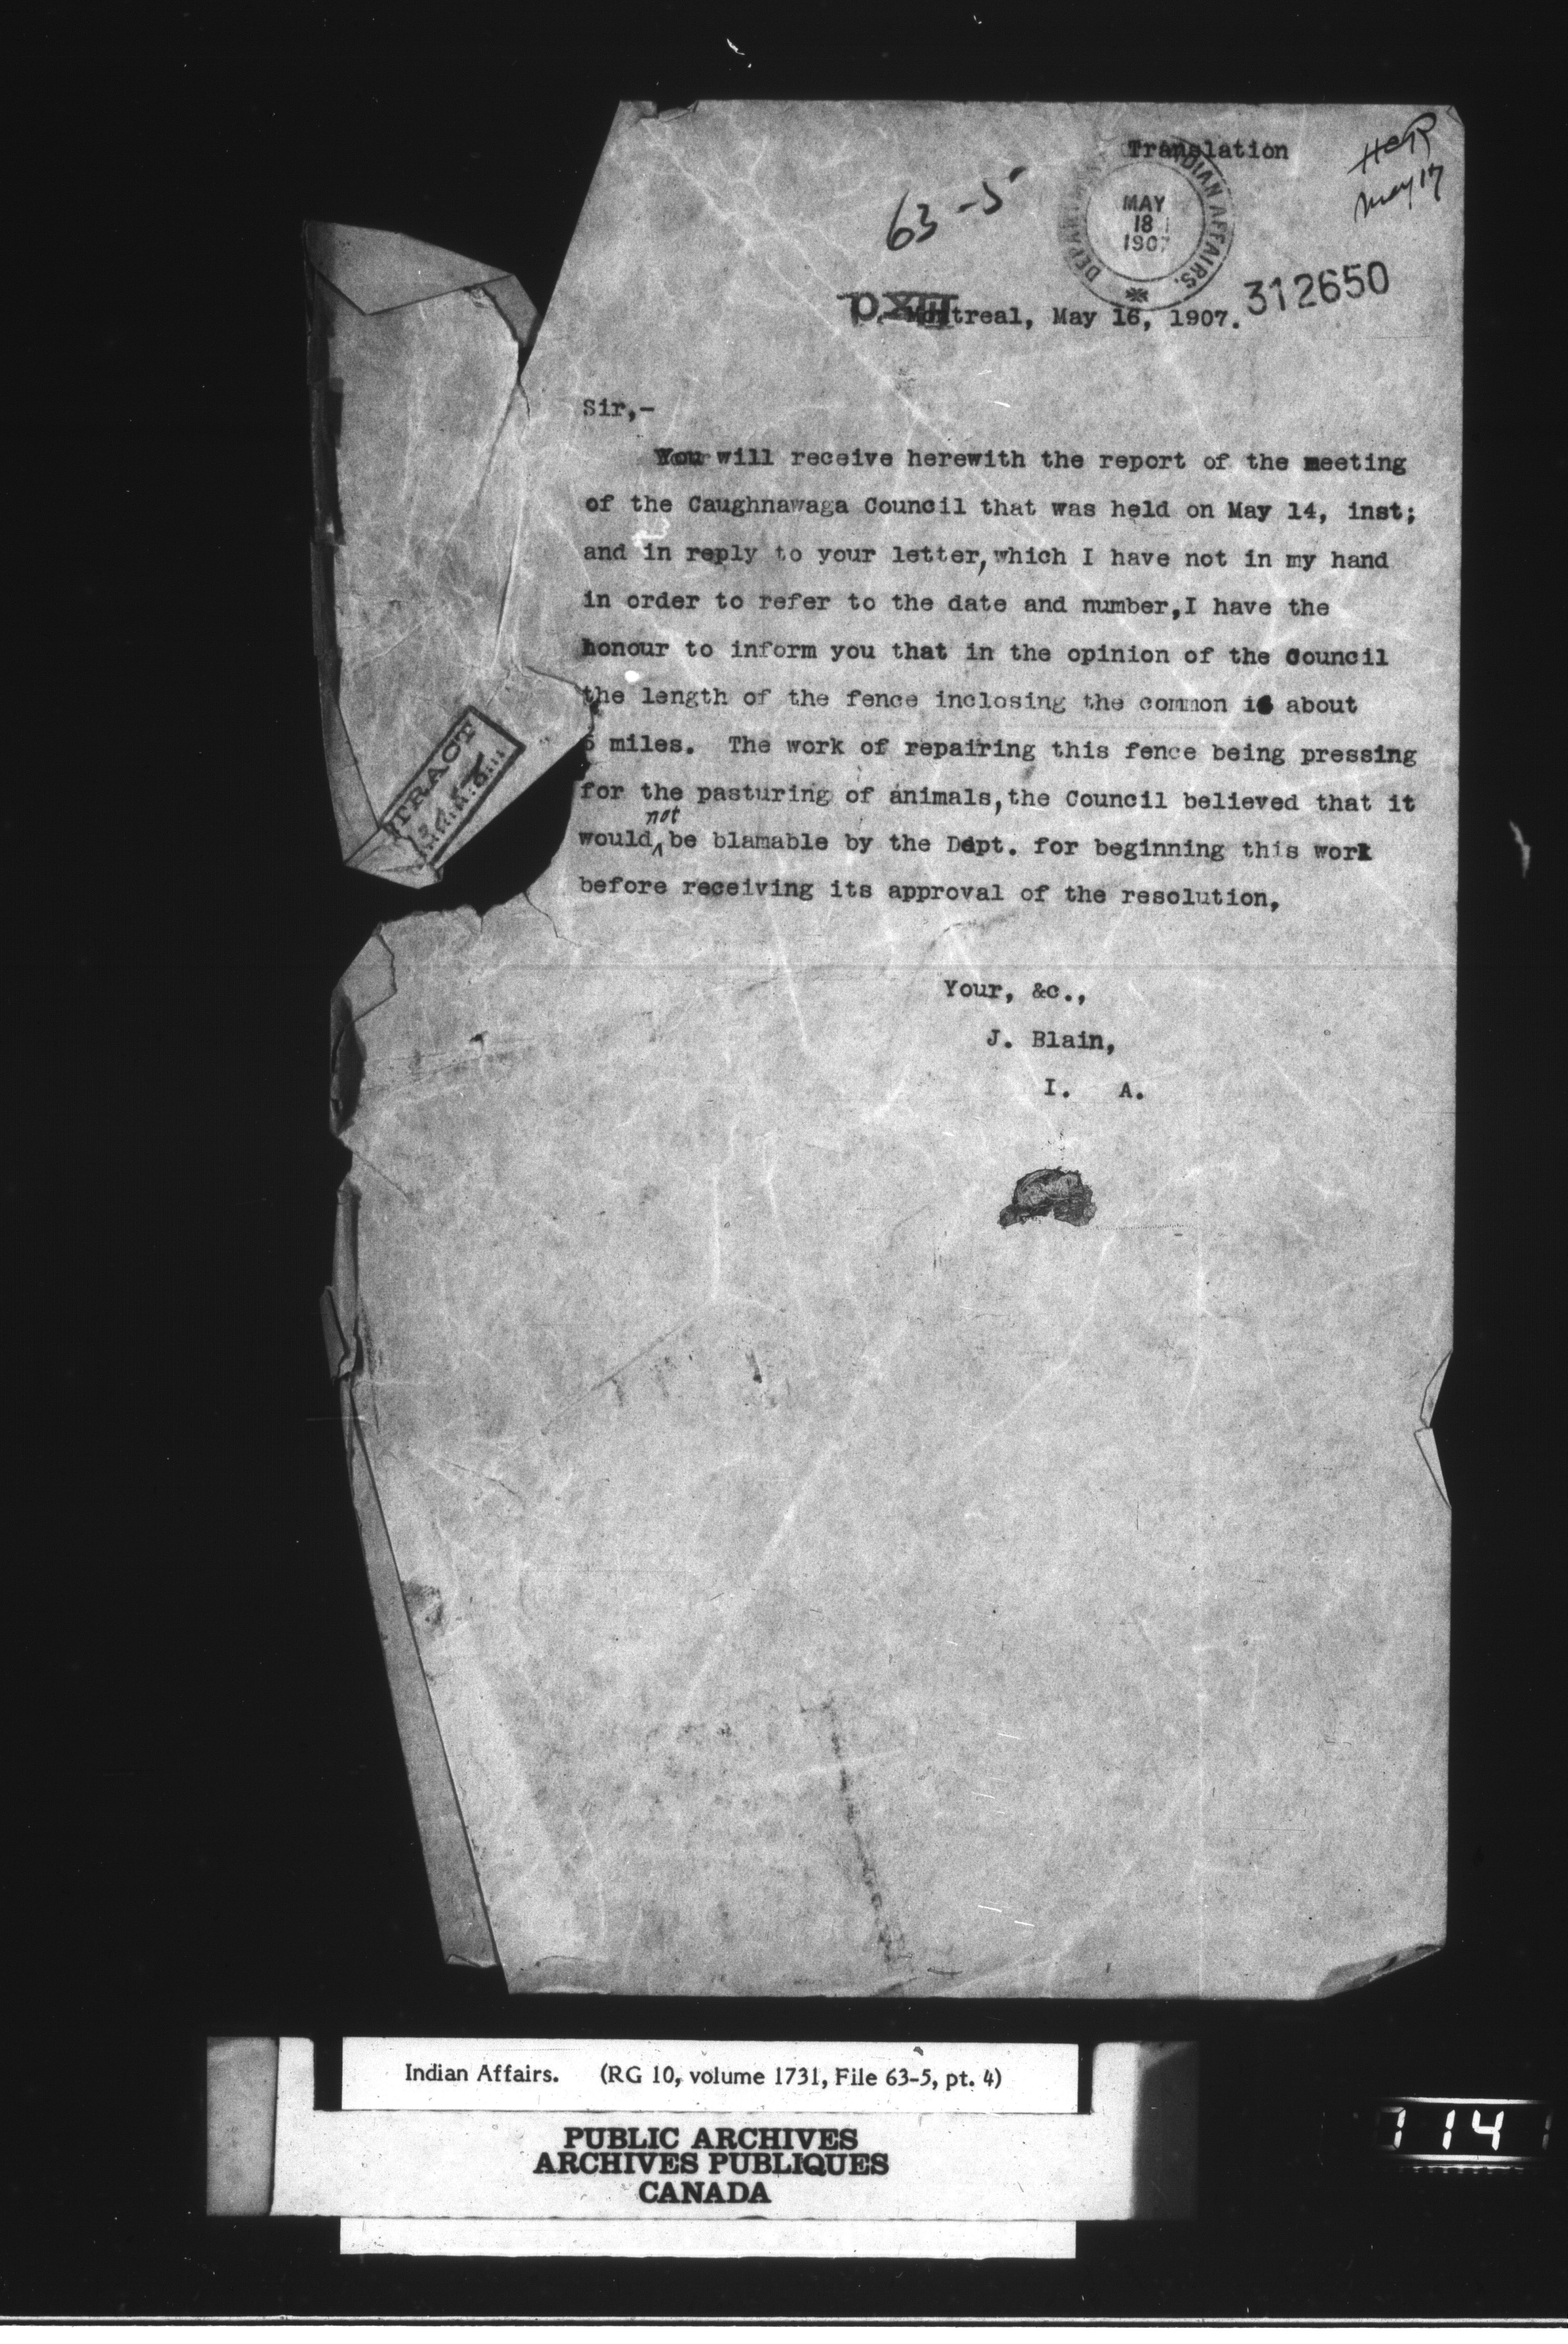 Translation
HCR
May 17
63-5
DEPARTMENT INDIAN AFFAIRS.
MAY
18
1907
312650
Montreal, May 16, 1907.
Sir,-
You will receive herewith the report of the meeting
of the Caughnawaga Council that was held on May 14, inst;
and in reply to your letter, which I have not in my hand
in order to refer to the date and number, I have the
honour to inform you that in the opinion of the Council
the length of the fence inclosing the common is about
miles. The work of repairing this fence being pressing
for the pasturing of animals, the Council believed that it
would not be blamable by the Dept. for beginning this work
before receiving its approval of the resolution,
Your, &c.,
J. Blain,
I. A.
TRACT
Indian Affairs. (RG 10, volume 1731, File 63-5, pt. 4)
PUBLIC ARCHIVES
ARCHIVES PUBLIQUES
CANADA
114